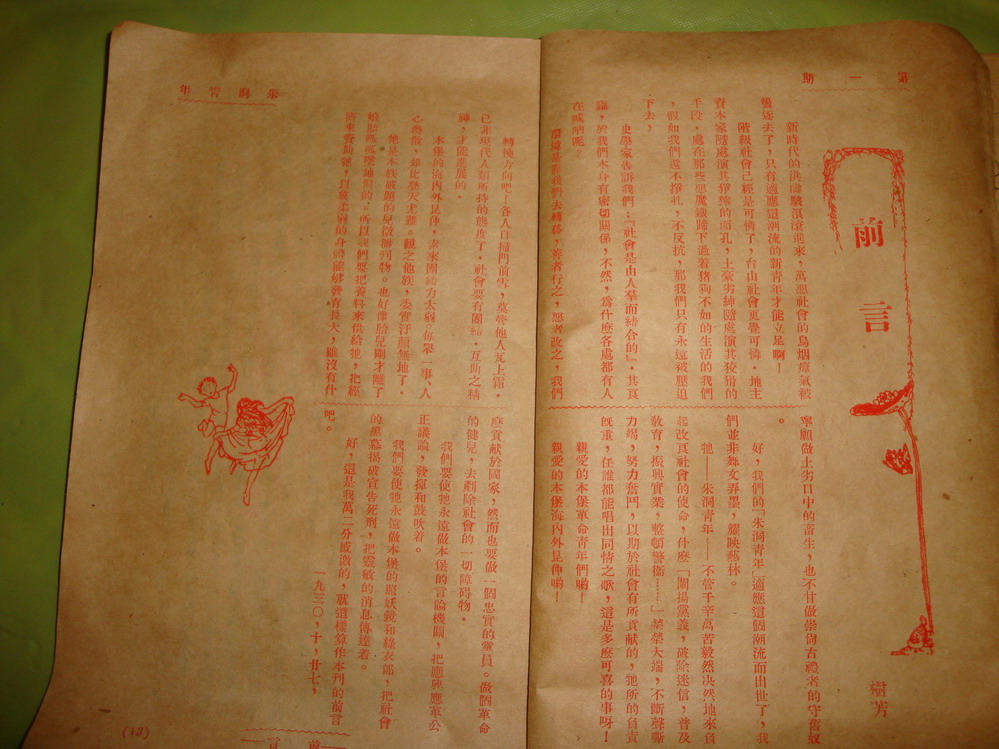 第一期
前言
樹芳
新時代的洪濤駿滾滾進來，萬惡社會的烏烟瘴氣被
逐去了，只有適應這潮流的新青年才能立足啊！
階級社會已經是可憐了，台山社會更覺可憐。地主
資本家隨處演其猙獰的面孔，土豪劣紳隨處演其狡猾的
手段，處在那些惡魔鐵蹄下過着豬狗不如的生活的我們
，假如我們還不掙扎，不反抗，那我們只有永遠被壓迫
下去，
史學家告訴我們：『社會是由人羣而結合的』。其良
窳，於我們本身有密切關係，不然，爲什麼各處都有人
在喊吶呢？
環境是靠我們去轉移，善者行之，惡者改之，我們
寧願做土劣口中的畜生，也不甘做崇尚古禮者的守舊奴
。
好，我們的「朱洞青年」適應這個潮流而出世了，我
們並非舞文弄墨，耀映藝林。
牠——朱洞青年——不管千辛萬苦毅然决然地來負
起改良社會的使命，什麼「闡揚黨義，破除迷信，普及
教育，振興實業，整頓警衞……」犖犖大端，不斷聲嘶
力竭，努力奮鬥，以期於社會有所貢献的，牠所的自責
旣重，任誰都能唱出同情之歌，這是多麽可喜的事呀！
親愛的本堡革命青年們喲！
親愛的本堡海內外昆仲喲！
朱洞青年
轉換方向吧！各人自掃門前雪，莫管他人瓦上霜。
已非現代人類所持的態度了。社會要有團結，互助之精
神，才能進展的。
本堡的海內外昆仲，素來團結力太弱。每舉一事，人
心渙散，難比登天尤難。觀之他族，委實汗顏無地了。
牠是本族破題的兒微漪刋物。也好像胎兒剛才離了
娘胎呱呱墜地似的，所以我們要把養料來供給牠，把經
濟來資助牠，以冀柔弱的身體能够養育長大，雖沒有什
麽貢献於國家，然而也要做一個忠實的黨員。做個革命
的健兒，去剷除社會的一切障碍物。
我們要使牠永遠做本堡的言論機關，把應興應革公
正議論，發揮和鼓吹着。
我們要使牠永遠做本堡的照妖鏡和綠衣郎，把社會
的黑幕揭破宣告死刑，把靈敏的消息傳達着。
好，這是我萬二分感激的，就這樣算作本刋的前言
吧。
一九三〇，十，廿七，
前言
(13)